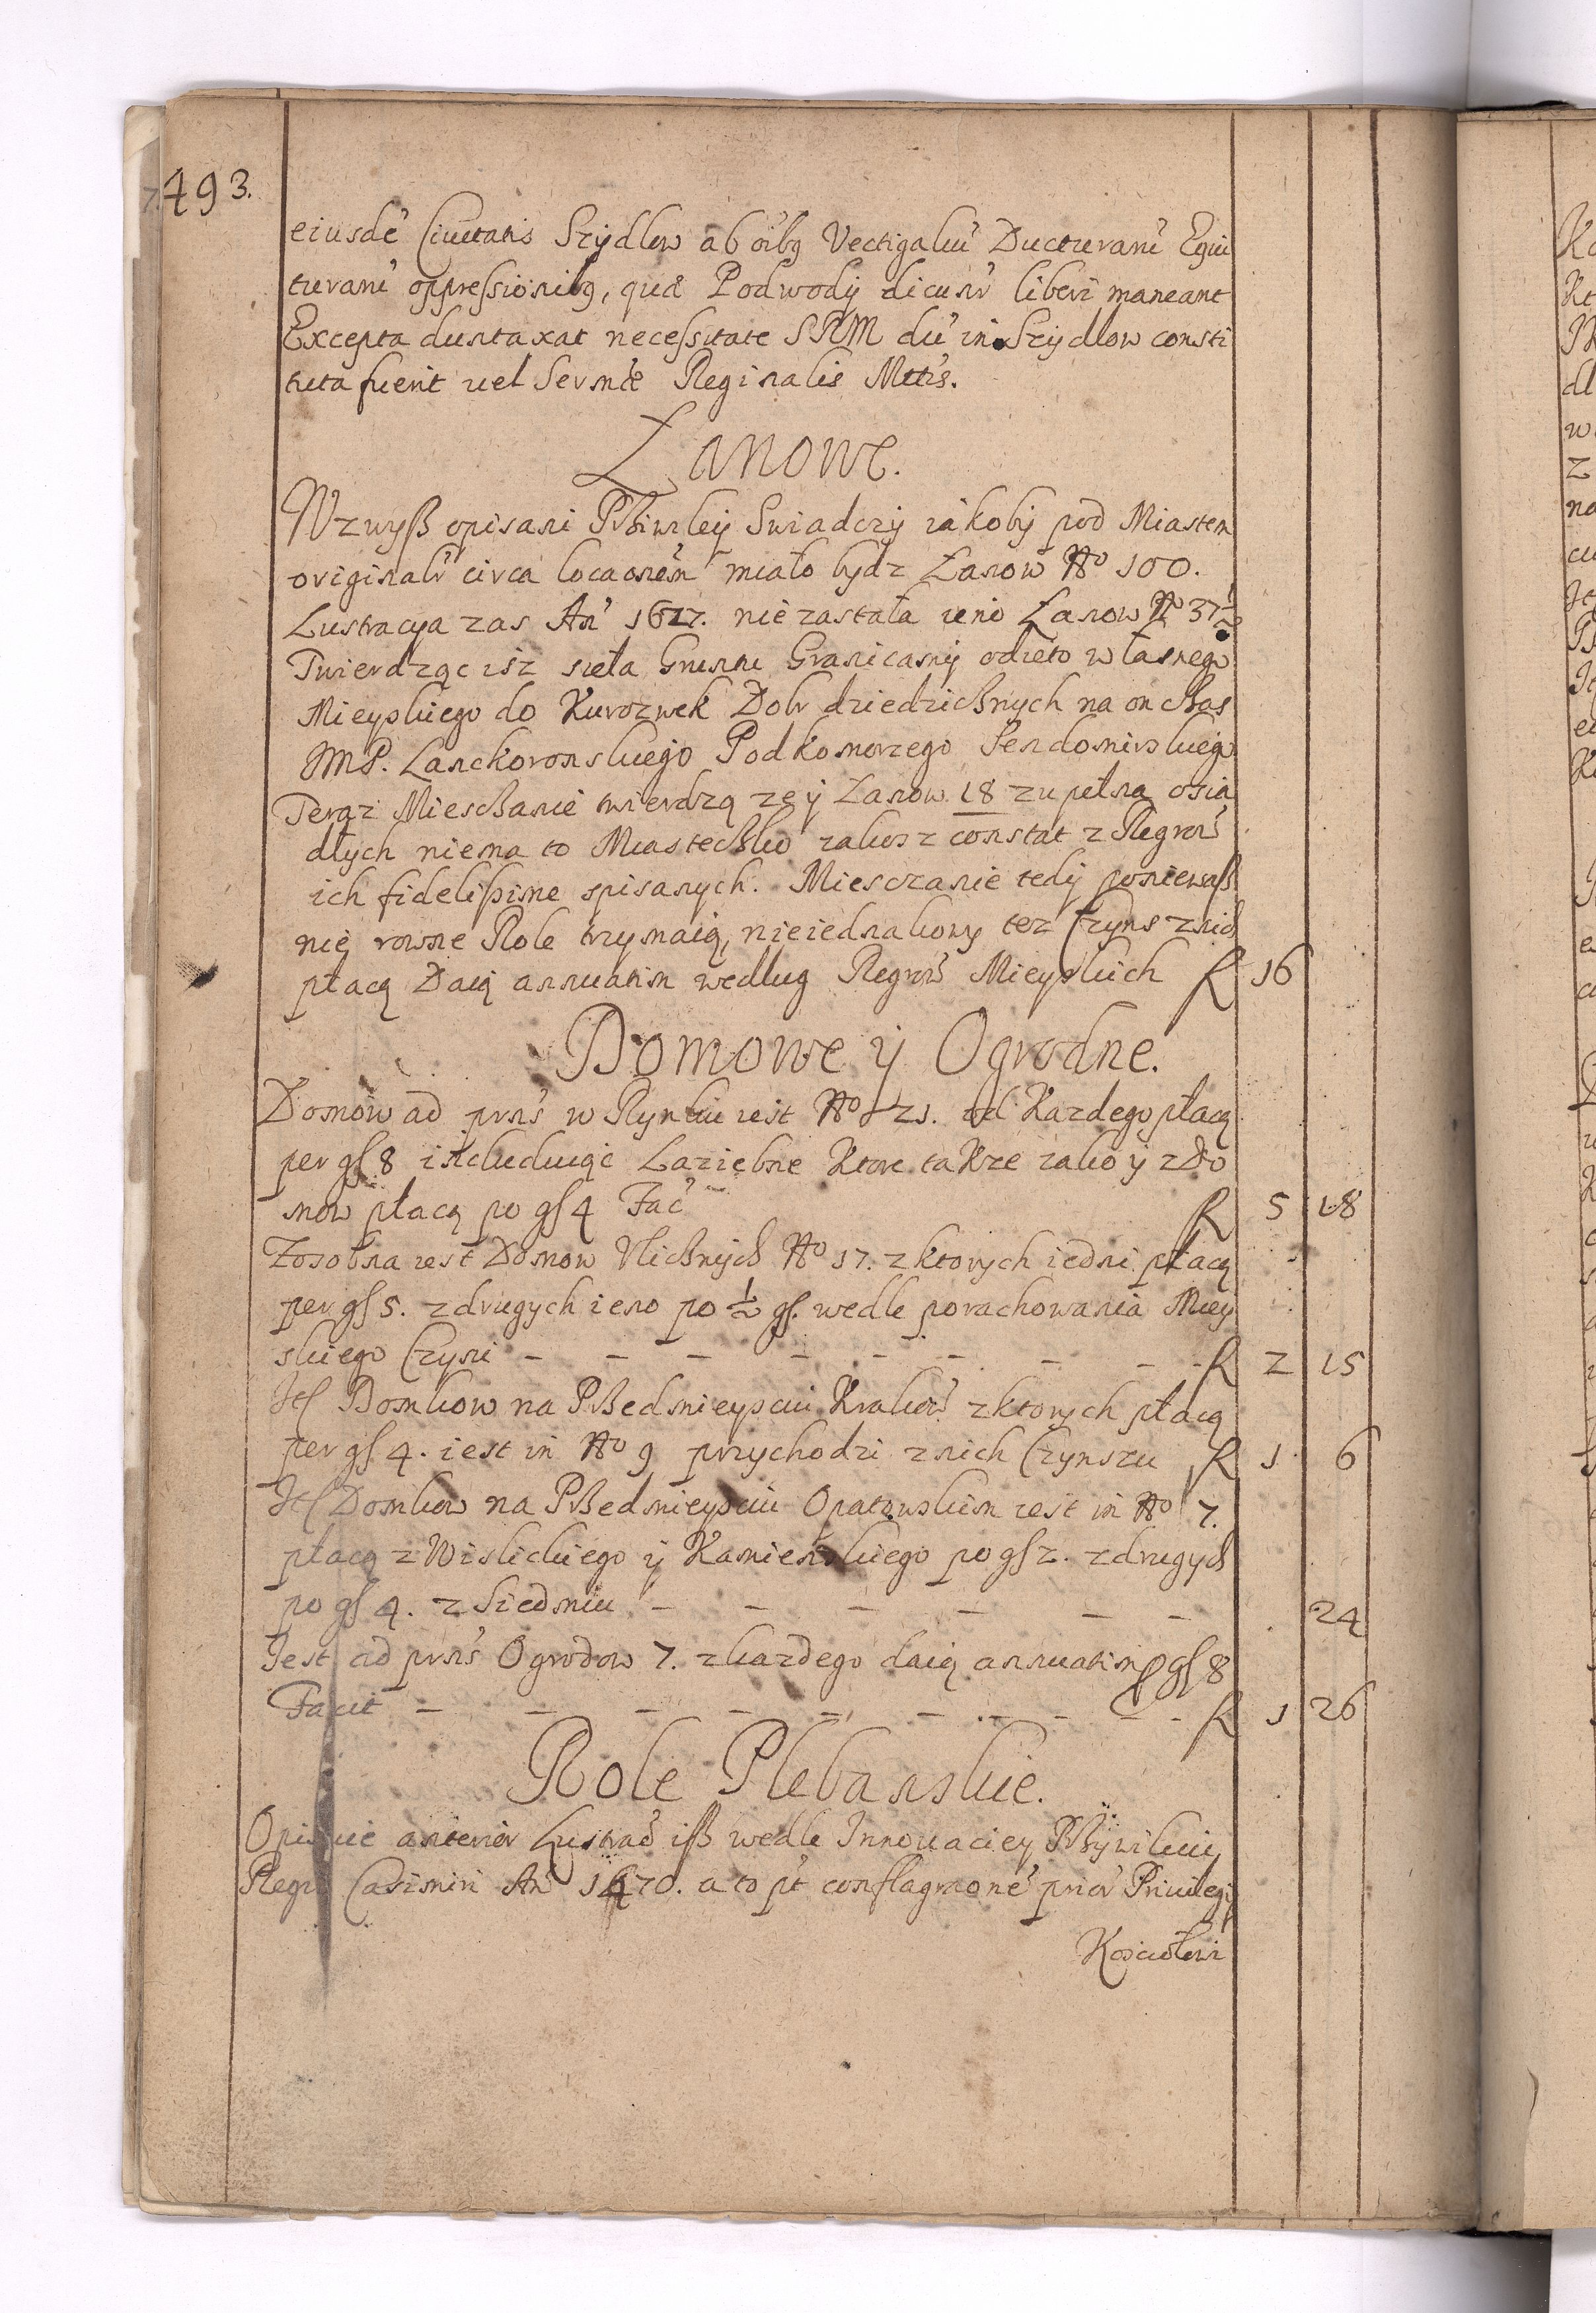 493.
eiusdē Ciuitatis Szydlow ab oībꝫ Vectigaliū Ducturarū Equi
turarū oppressionibꝫ, quæ Podwody dicunt̄ liberi maneant
Excepta duntaxat necessitate SRM dū in Szydlow consti
tuta fuerit uel Serm̄æ Reginalis Mttis.
Łanowe.
Wzwyß opisani Prßiwiley Swiadczy iakoby pod Miastem
originalr̄ circa locaōnem miało bydz Łanow No 100.
Lustracya zas An̄ 1627. nie zastała ieno Łanow No 37½
Twierdząc isz siełа Gruntu Granicamy odięto własnego
Mieyskiego do Kurozwek Dobr dziedzicßnych na on cßas
JMP. Lanckoronskiego Podkomorzego Sendomirskiego
Teraz Miescßanie twierdzą ze y Łanow 18 zupełną osia
dłych niema to Miastecßko iakosz constat z Regrōw
ich fidelißime spisanych. Miesczanie tedy poniewaß
nie rowne Role trzymaią, nieiednakowy tez Czyns znich
płacą Daią annuatim wedlug Regrōw Mieyskich f 16
Domowe y Ogrodne.
Domow ad prn̄s w Rynku iest No 21. od Kazdego płacą
per gſ 8 includuiąc Laziebne Ktore takze iako y z Do
mow płacą po gſ 4 Fac̄ f 5 18
Zosobna iest Domow Vlicßnych No 17. z ktorych iedni płacą
per gſ 5. z drugych ieno po ½ gſ. wedle porachowania Miey
skiego Czyni - - - - - - - - f 2 15
Itſ Domkow na Prßedmieysciu Krakow̄ z ktorych płacą
per gſ 4. iest in No 9 przychodzi znich Czynszu f 1 6
Itſ Domkow na Prßedmieysciu Opatowskim iest in No 7.
płacą z Wislickiego y Kamienskiego po gſ 2. z drugych
po gſ 4. z Siedmiu - - - - - - 24
Jest ad prn̄s Ogrodow 7. z kazdego daią annuatim p gſ 8
Facit - - - - - - - - - f 1 26
Role Plebanskie.
Opisuie anterior Lustrac̄ iß wedle Innouaciey Prßywileiu
Regis Casimiri An̄ 1470. a to pt̄ conflagraōnē prior̄ Privilegij
Kosciołowi